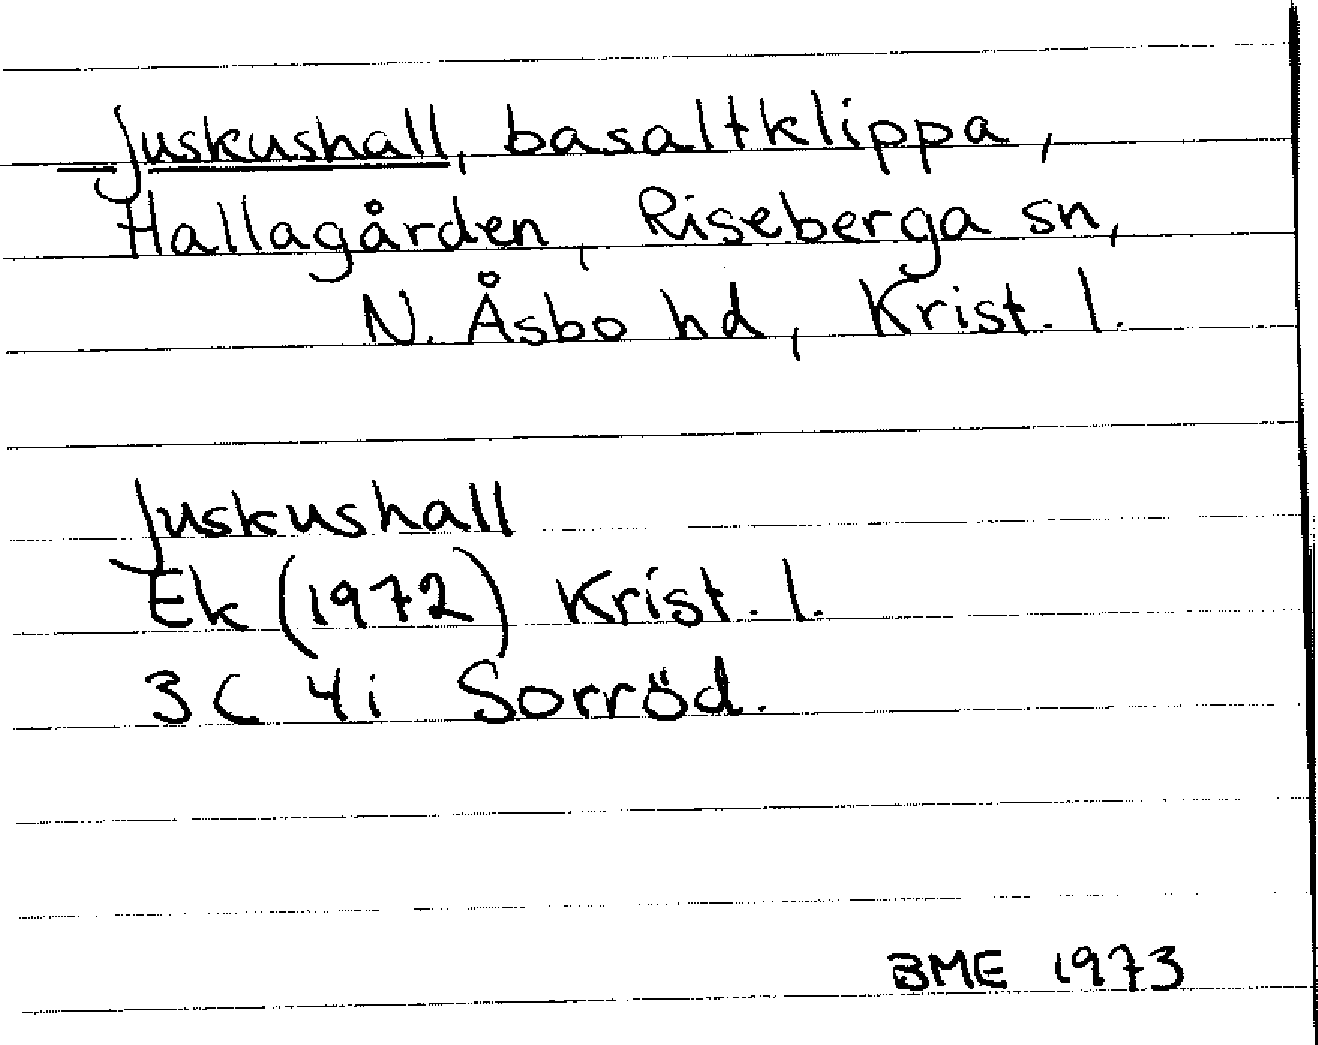 Juskushall, basaltklippa,
Hallagården, Riseberga sn,
N. Åsbo hd, Krist. l.
Juskushall
Ek (1972) Krist. l.
3C 4i Sorröd.
BME 1973